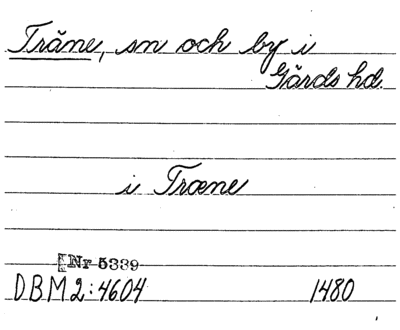 Träne, sn och by i
Gärds hd.
i Træne
Nr 5339
DBM 2:4604 1480